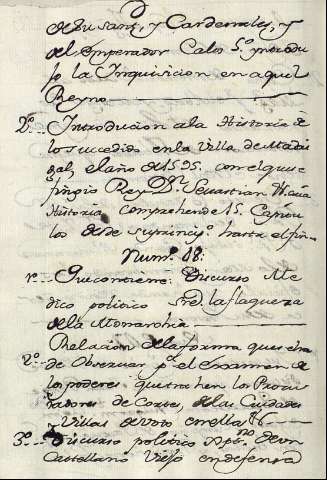 de su Sant.d, y Cardenales, y
del Emperador Calos 5.º introdu
jo la Inquisicion en aquel
Reyno
2.º Introducion a la Historia de
lo sucedido en la Villa de Madri
gal, el año de 1595. con el que se
fingio Rey Dn. Sevastian
Historia comprehende 15. Capitu
los desde su princip.º hasta el fin
Num.º 18.
1.º Que contiene: Discurso Me
dico politico sre. la flaqueza
de la Monarchia
2.º Relacion de la forma que se ha
de Observar p.ª el Examen de
los poderes que trahen los Procu
radores de Cortes, de las Ciudades
y Villas de voto en ellas
3.º Discurso politico de un
Castellano Viejo en defensa